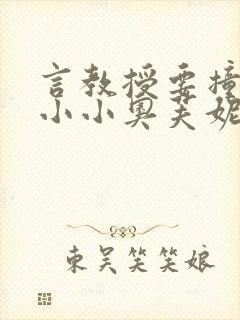 言教授要撞
小小奥芙妮
東吴笑笑娘